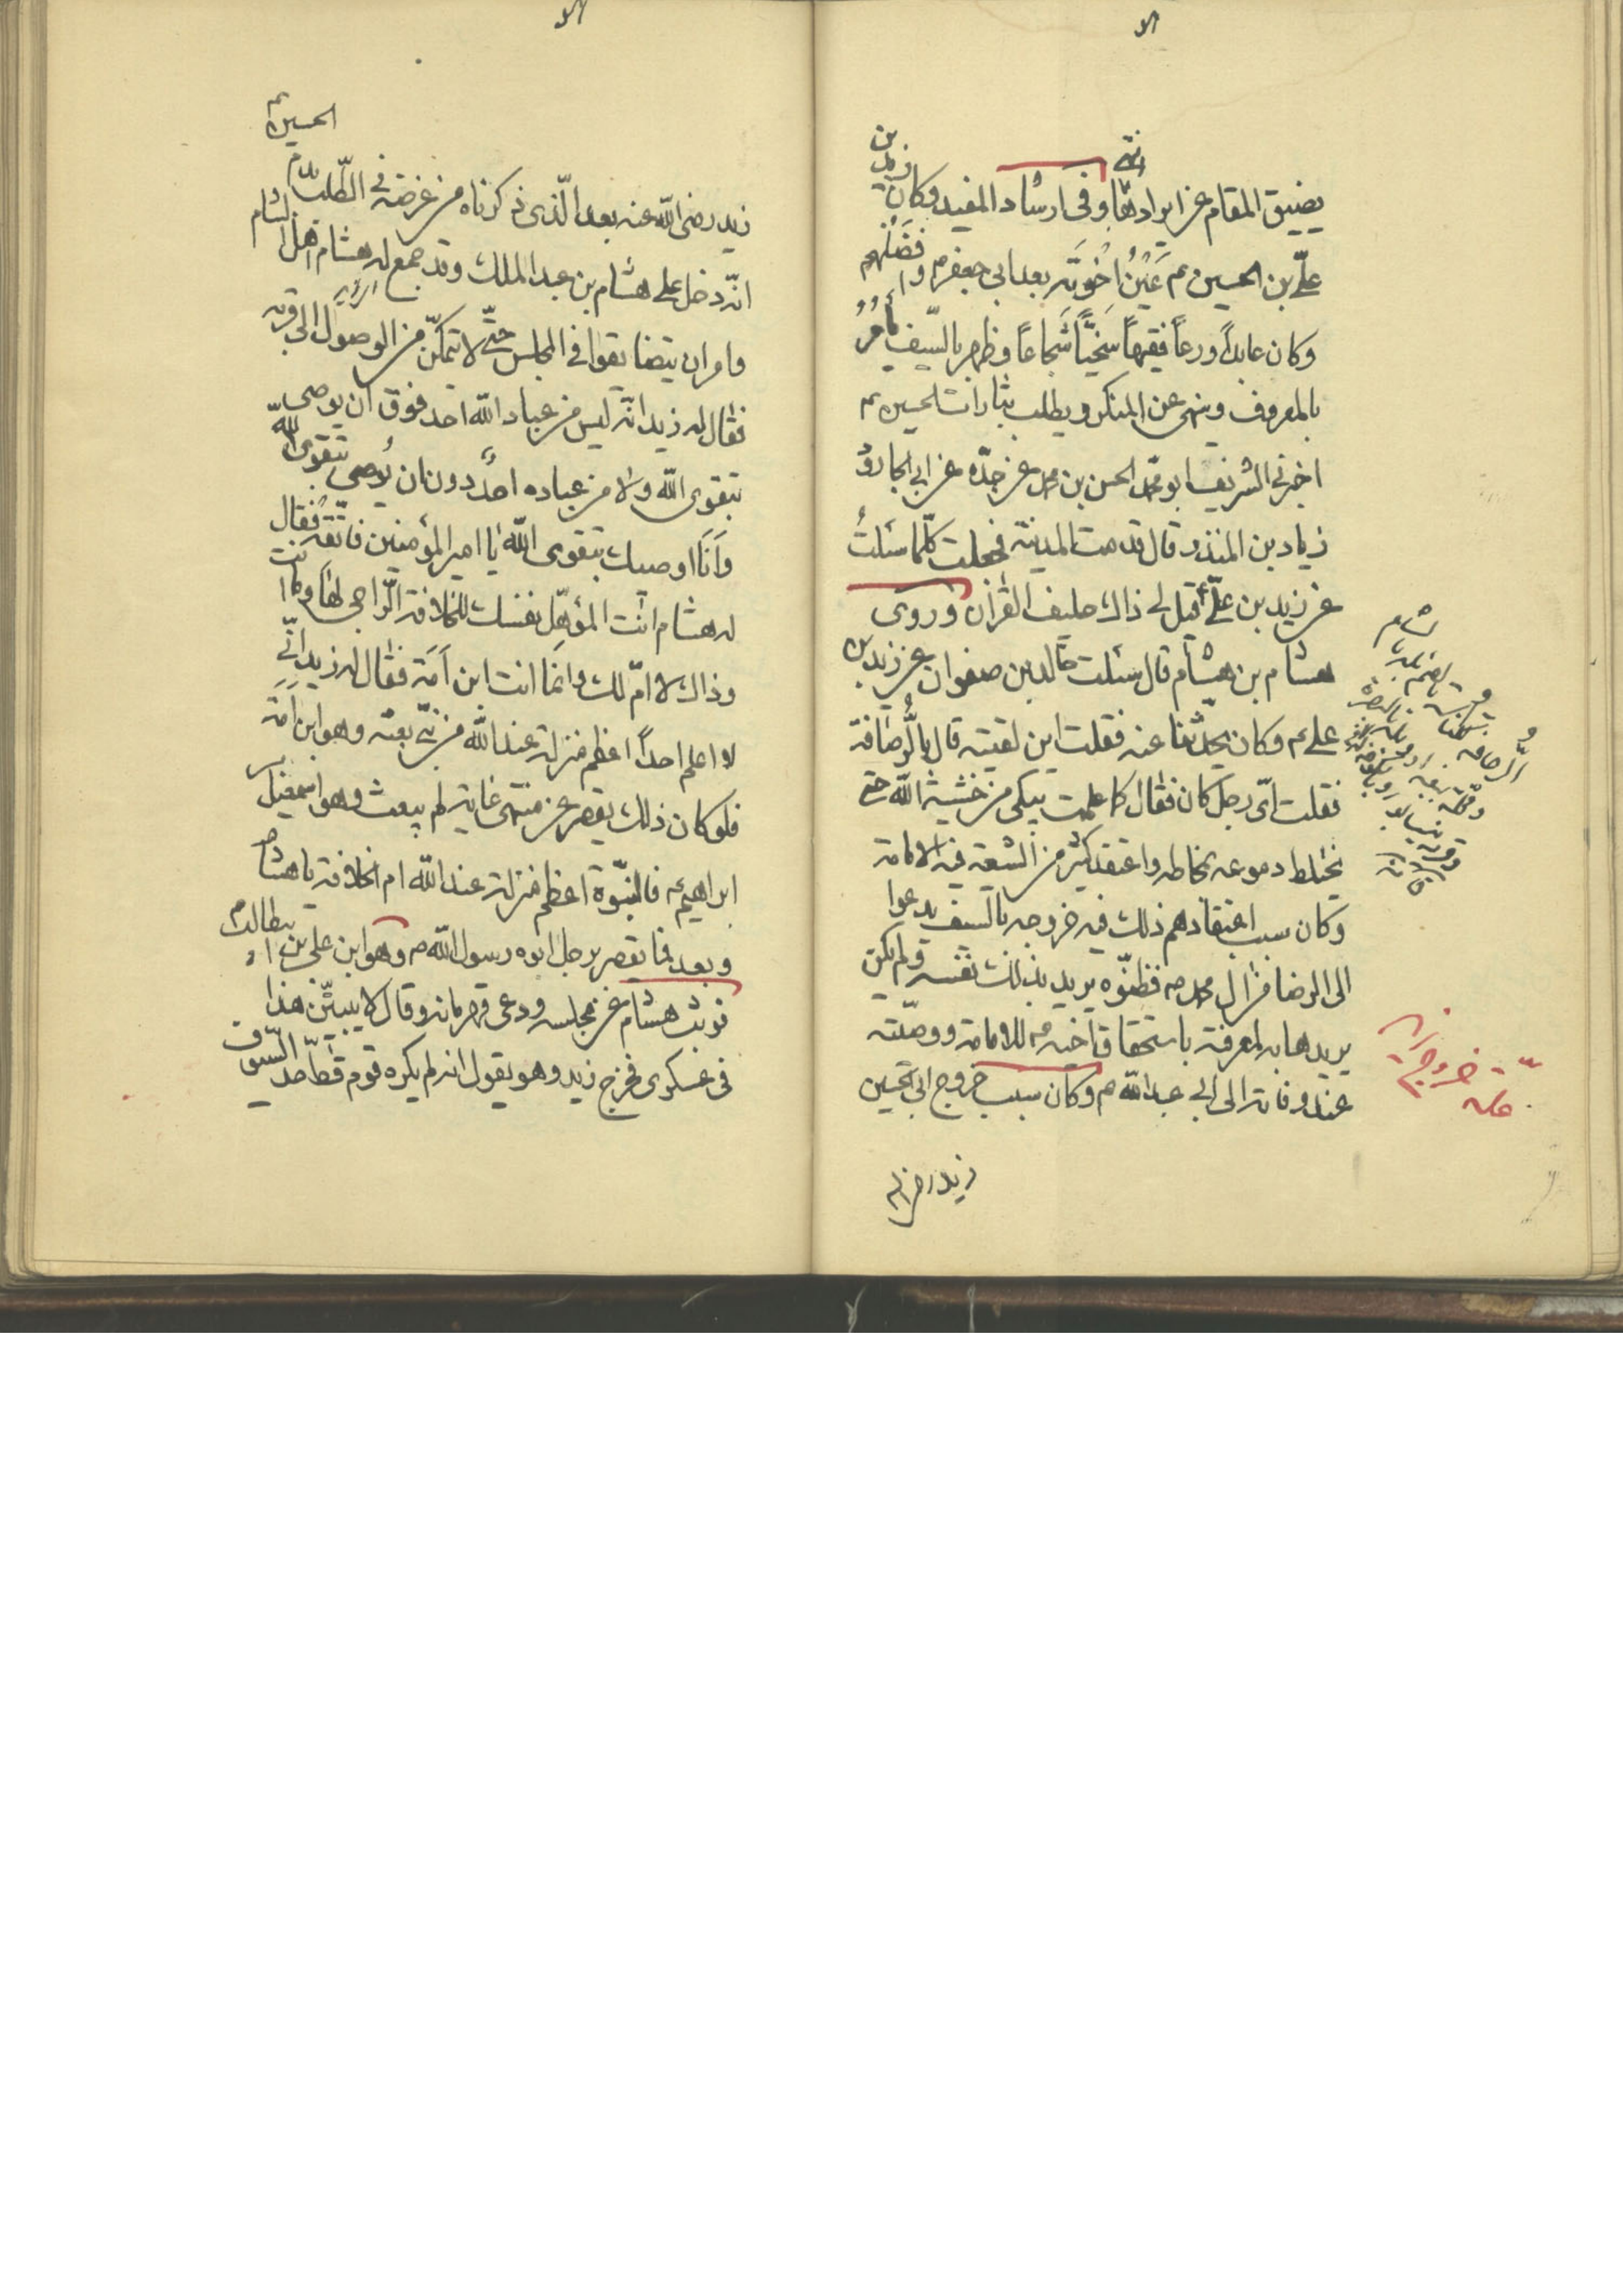 يضيق المقام عن ايرادها انتهى وفى ارشاد المفيد وكان زيد بن
علىّ بن الحسين ع عَيْنُ اخْوَتِه بعد ابى جعفر ع وافضَلُهم
وكان عابداً ورعاً فقيهاً سَخيّاً شجاعاً وظهر بالسّيف يأمُرُ
بالمعروف وينهى عن المنكر ويطلب بثارات الحسين ع
اخبرنى الشريف ابو محمّد الحسن بن محمد عن جدّه عن ابى الجارود
زياد بن المنذر قال قدمت المدينة فجعلت كلّما سئلتُ
عن زيد بن علىّ قيل لى ذاك حليف القرآن وروى
هشام بن هشام قال سئلت خالد بن صفوان عن زيد بن
على ع وكان يحدّثنا عنه فقلت اين لقيته قال بالُّرصافة
فقلت اىّ رجل كان فقال كما علمت يبكى من خشية الله حتى
يختلط دموعه بمخاطه واعتقد كثير من الشيعة فيه الامامة
وكان سبب اعتقادهم ذلك فيه خروجه بالسيف يدعوا
الى الرضا من ال محمد ص فظنّوه يريد بذلك نفسه ولم يكن
يريدها به لمعرفته باستحقاق اخيه ع للامامة ووصيّته
عند وفاته الى ابى عبد الله ع وكان سبب خروج ابى الحسين
زيد رضى الله
علة خروج زيد
الحسين ع
زيد رضى الله عنه بعد الّذى ذكرناه من غرضه فى الطّلب بدم
انّه دخل على هشام بن عبد الملك وقد جمع له هشام اهل الشام
وامر ان يتضايقوا فى المجلس حتّى لا يتمكّن من الوصول الى قربه
فقال له زيد انّه ليس من عباد الله احد فوق ان يوصى
بتقوى الله ولا من عباده احدٌ دون ان يُوصى بتقوى الله
وَاَنَا اوصيك بتقوى الله يا امير المؤمنين فاتّقه فقال
له هشام انت المؤهّل نفسك للخلافة الرّاجى لها وما انت
وذاك لا امّ لك وانّما انت ابن اَمَة فقال له زيد انّى
لا اعلم احداً اعظم منزلة عند الله من نبىّ بعثه وهو ابن اَمَة
فلو كان ذلك يقصر عن منتهى غاية لم يبعث وهو اسمعيل بن
ابراهيم ع فالنبّوة اعظم منزلة عند الله ام الخلافة يا هشام
وبعد فما يقصر برجل ابوه رسول الله ص وهو ابن على بن ابيطالب ع
فوثب هشام عن مجلسه ودعى قهرمانه وقال لا يبيتّن هذا
فى عسكرى فخرج زيد وهو يقول انه لم يكره قوم قطّ حدّ السيوف